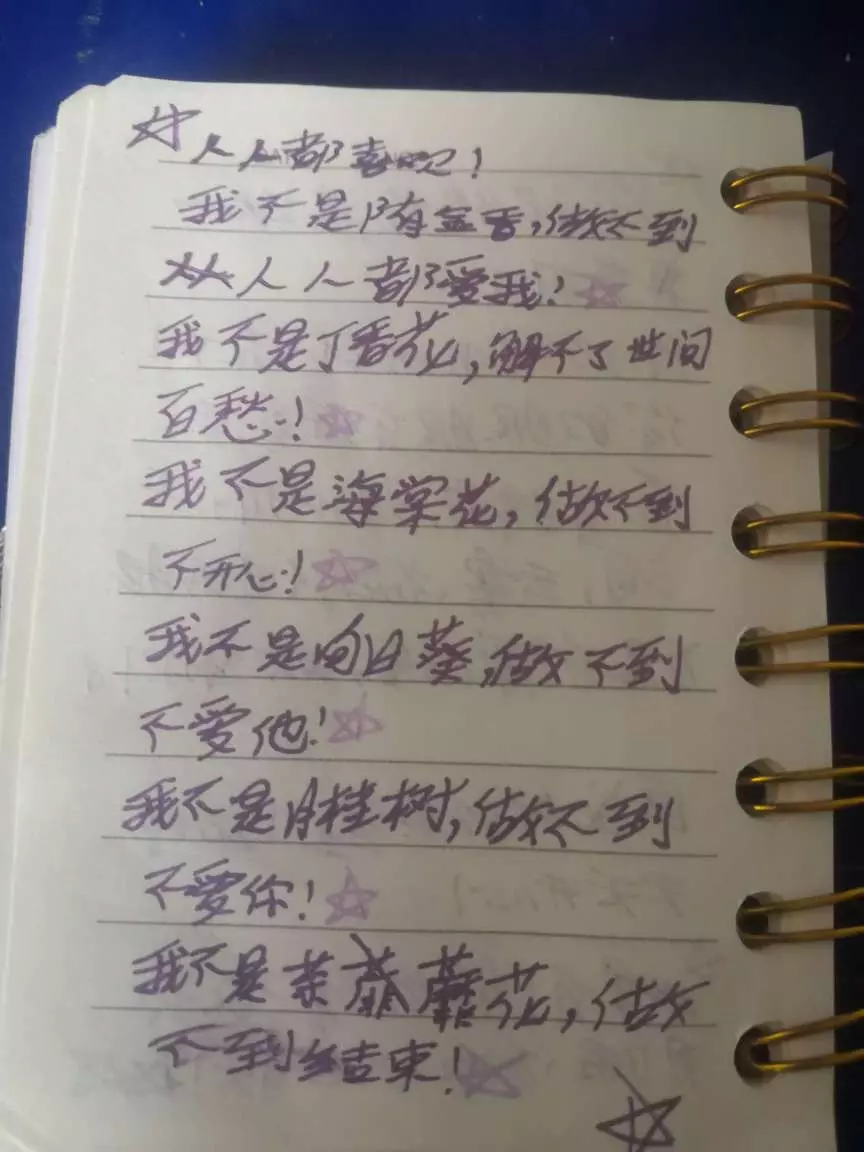 ☆人人都喜吧!
我不是隋金香,做不到
人人都爱我!☆
我不是丁香花,解不了世间
百愁!☆
我不是海棠花,做不到
不开心!☆
我不是向日葵,做不到
不爱他!☆
我不是月桂树,做不到
不爱你!☆
我不是荼蘼花,做
不到结束!☆
☆